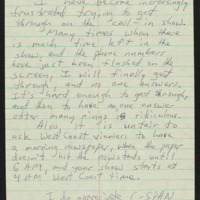 I have become increasingly
frustrated trying to get
through on the "call in" show.
Many times when there
is much time left in the
show, and the phone numbers
have just been flashed on the
screen, I will finally get
through, and no one answers.
It's hard enough to get through,
and then to have no one answer
after many rings is ridiculous.
Also it is unfair to
ask West Coast viewers to have
a morning newspaper, when the paper
doesn't hit the newstands until
6 AM, and your show starts at
4 AM West Coast time.
I do appreciate C-SPAN